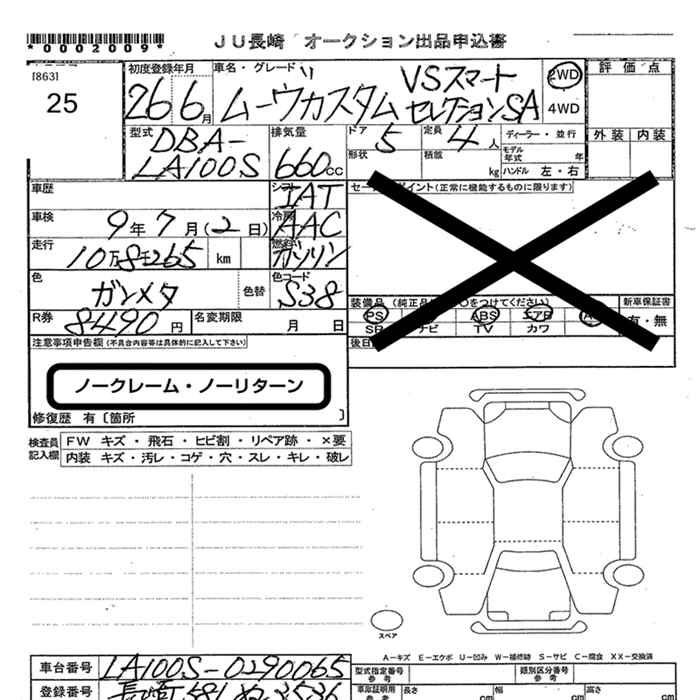 *0002009* JU長崎 オークション出品申込書
[863]
25
初度登録年月 車名・グレード
26 6月 ムーヴカスタム VSスマート
セレクションSA
2WD
4WD
評価点
外装 内装
型式 DBA-
LA100S
排気量 660cc
ドア 5 定員 4人 ディーラー・並行
形状 積載 kg モデル年式 年
ハンドル 左・右
車歴 シフト IAT
車検 9年7月(2日) 冷房 AAC
走行 10万8千265 km 燃料 ガソリン
色 ガンメタ 色替 色コード S38
R券 8490円 名変期限 月 日
セールスポイント(正常に機能するものに限ります)
装備品 (純正品に○をつけてください) 新車保証書
PS ABS エアB 有・無
SR ナビ TV カワ
後日
注意事項申告欄(不具合内容等は具体的に記入して下さい)
ノークレーム・ノーリターン
修復歴 有〔箇所 〕
検査員記入欄
FW キズ・飛石・ヒビ割・リペア跡・×要
内装 キズ・汚レ・コゲ・穴・スレ・キレ・破レ
スペア
A−キズ E−エクボ U−凹み W−補修跡 S−サビ C−腐食 XX−交換済
車台番号 LA100S-0290065
型式指定番号 参考 類別区分番号 参考
登録番号 長崎 581 ぬ 3536
車庫証明用 参考 長さ cm 幅 cm 高さ cm